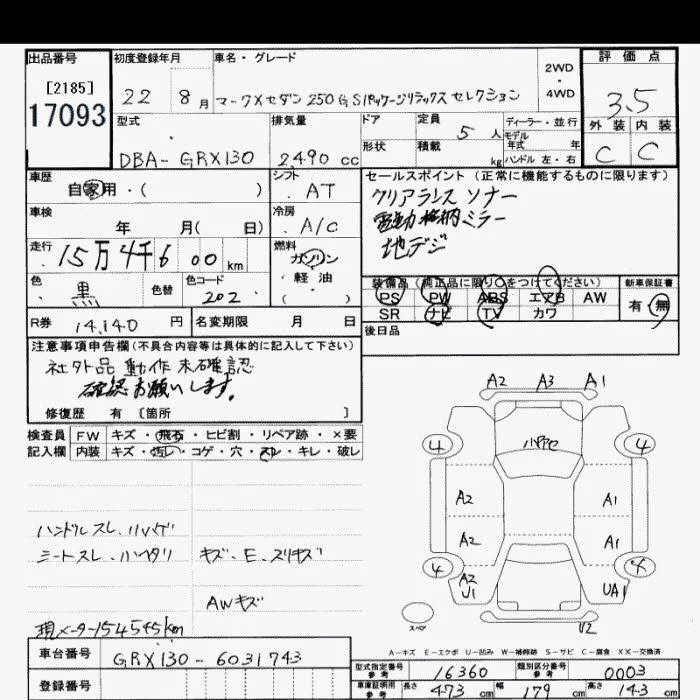 出品番号
[2185]
17093
初度登録年月
22 8月
車名・グレード
マークXセダン 250G Sパッケージリラックスセレクション
2WD
・
4WD
評価点
3.5
外装 内装
C C
型式
DBA-GRX130
排気量
2490 cc
ドア
形状
定員
5人
積載
kg
ディーラー・並行
モデル
年式 年
ハンドル 左・右
車歴
自家用・( )
シフト
AT
車検
年 月( 日)
冷房
A/C
走行
15万4千6 00 km
燃料
ガソリン
・
軽油
( )
色
黒
色替
色コード
202
セールスポイント (正常に機能するものに限ります)
クリアランスソナー
電動格納ミラー
地デジ
装備品 (純正品に限り○をつけてください)
PS PW ABS エアB AW
SR ナビ TV カワ
新車保証書
有・無
後日品
R券 14,140 円
名変期限 月 日
注意事項申告欄(不具合内容等は具体的に記入して下さい)
社外品動作未確認
確認お願いします。
修復歴 有 [箇所 ]
検査員
記入欄
FW キズ・飛石・ヒビ割・リペア跡・×要
内装 キズ・汚レ・コゲ・穴・スレ・キレ・破レ
ハンドルスレ、ハハゲ
シートスレ、ハハタリ
キズ、E、スリキズ
AWキズ
現メーター154545km
A2 A3 A1
4 4
A2 A1
A2 A1
4 4
A2
U1
UA1
U2
スペア
A-キズ E-エクボ U-凹み W-補修跡 S-サビ C-腐食 XX-交換済
車台番号
GRX130-6031743
登録番号
型式指定番号
参考
16360
類別区分番号
参考
0003
車庫証明用
参考
長さ 473 cm 幅 179 cm 高さ 143 cm